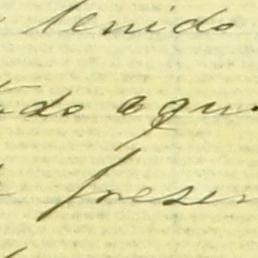 tenido
do aqu
presen